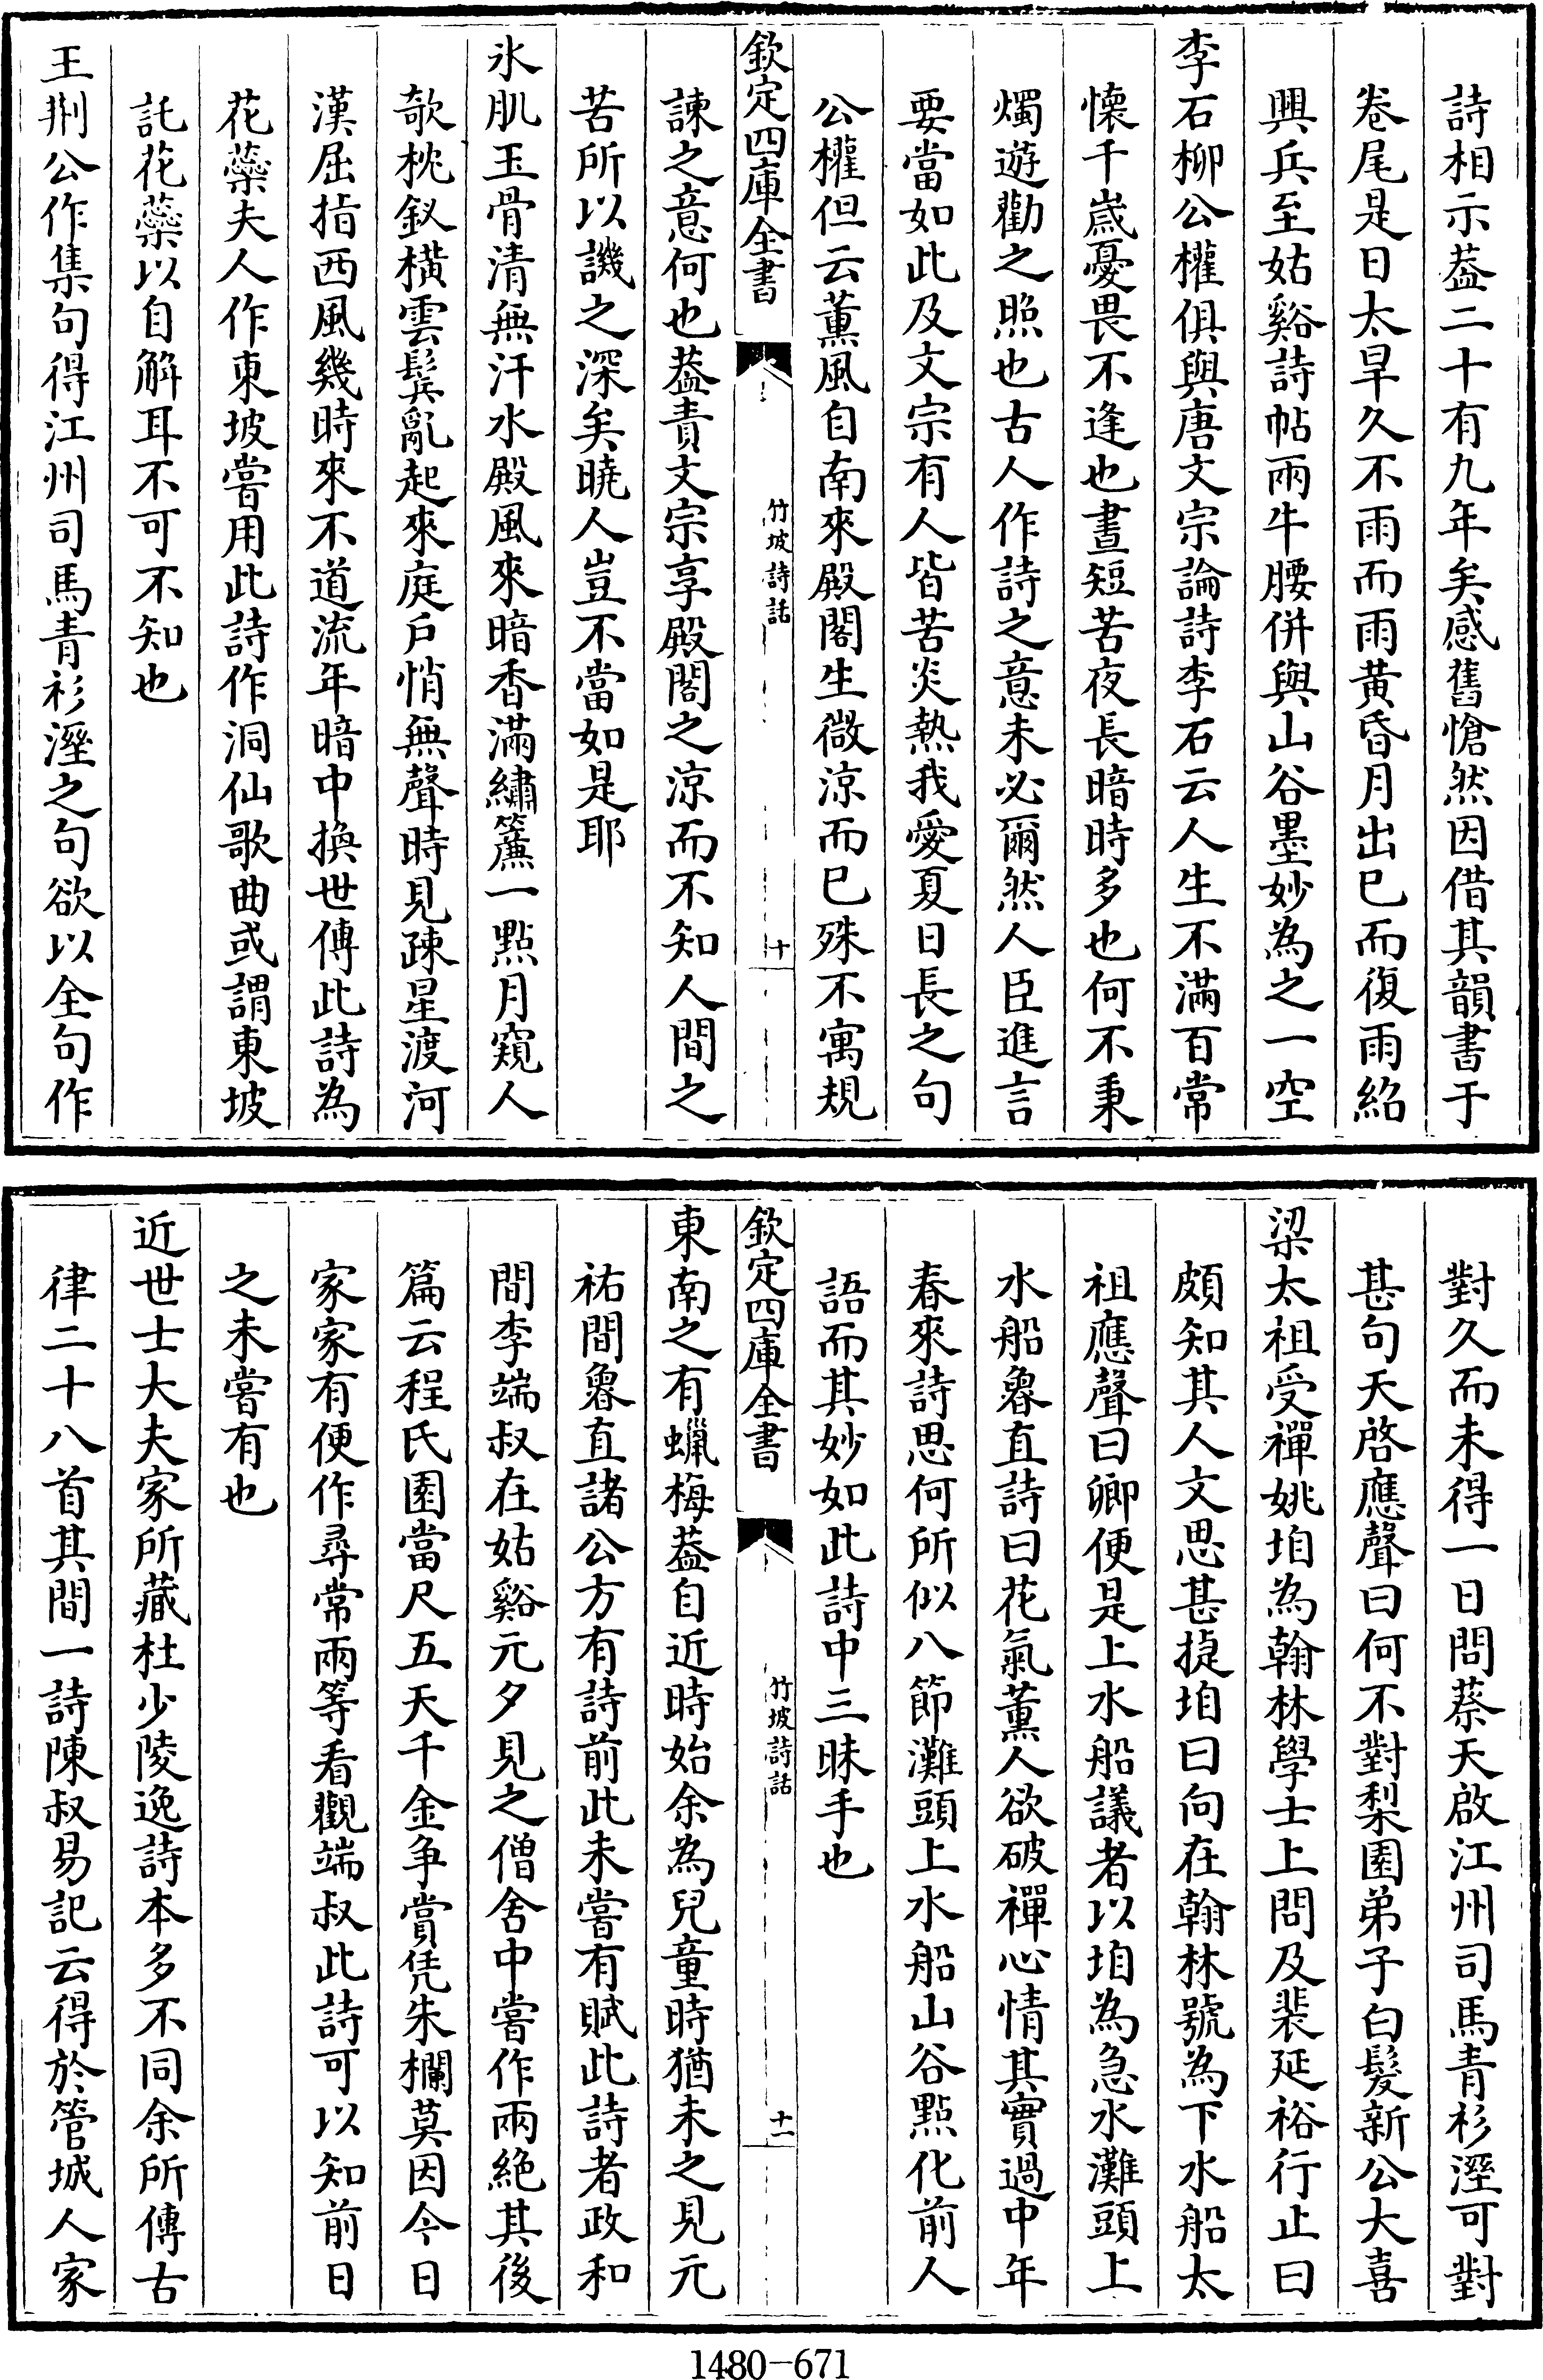 詩相示葢二十有九年矣感舊愴然因借其韻書于
卷尾是日太旱久不雨而雨黄昏月出已而復雨紹
興兵至姑谿詩帖兩牛腰併與山谷墨妙為之一空
李石柳公權俱與唐文宗論詩李石云人生不滿百常
懷千嵗憂畏不逢也晝短苦夜長暗時多也何不秉
燭遊勸之照也古人作詩之意未必爾然人臣進言
要當如此及文宗有人皆苦炎熱我愛夏日長之句
公權但云薰風自南來殿閣生微涼而已殊不寓規
欽定四庫全書
竹坡詩話
十
諫之意何也葢責文宗享殿閣之涼而不知人間之
苦所以譏之深矣曉人豈不當如是耶
氷肌玉骨清無汗水殿風來暗香滿繡簾一點月窺人
欹枕釵橫雲鬂亂起來庭戶悄無聲時見疎星渡河
漢屈指西風幾時來不道流年暗中換世傳此詩為
花蘂夫人作東坡嘗用此詩作洞仙歌曲或謂東坡
託花蘂以自解耳不可不知也
王荆公作集句得江州司馬青衫溼之句欲以全句作
對久而未得一日問蔡天啟江州司馬青衫溼可對
甚句天啓應聲曰何不對梨園弟子白髮新公大喜
梁太祖受禪姚垍為翰林學士上問及裴延裕行止曰
頗知其人文思甚捷垍曰向在翰林號為下水船太
祖應聲曰卿便是上水船議者以垍為急水灘頭上
水船魯直詩曰花氣薰人欲破禪心情其實過中年
春來詩思何所似八節灘頭上水船山谷點化前人
語而其妙如此詩中三昧手也
欽定四庫全書
竹坡詩話
十一
東南之有蠟梅葢自近時始余為兒童時猶未之見元
祐間魯直諸公方有詩前此未嘗有賦此詩者政和
間李端叔在姑谿元夕見之僧舍中嘗作兩絶其後
篇云程氏園當尺五天千金争賞凭朱欄莫因今日
家家有便作尋常兩等看觀端叔此詩可以知前日
之未嘗有也
近世士大夫家所藏杜少陵逸詩本多不同余所傳古
律二十八首其間一詩陳叔易記云得於管城人家
1480-671